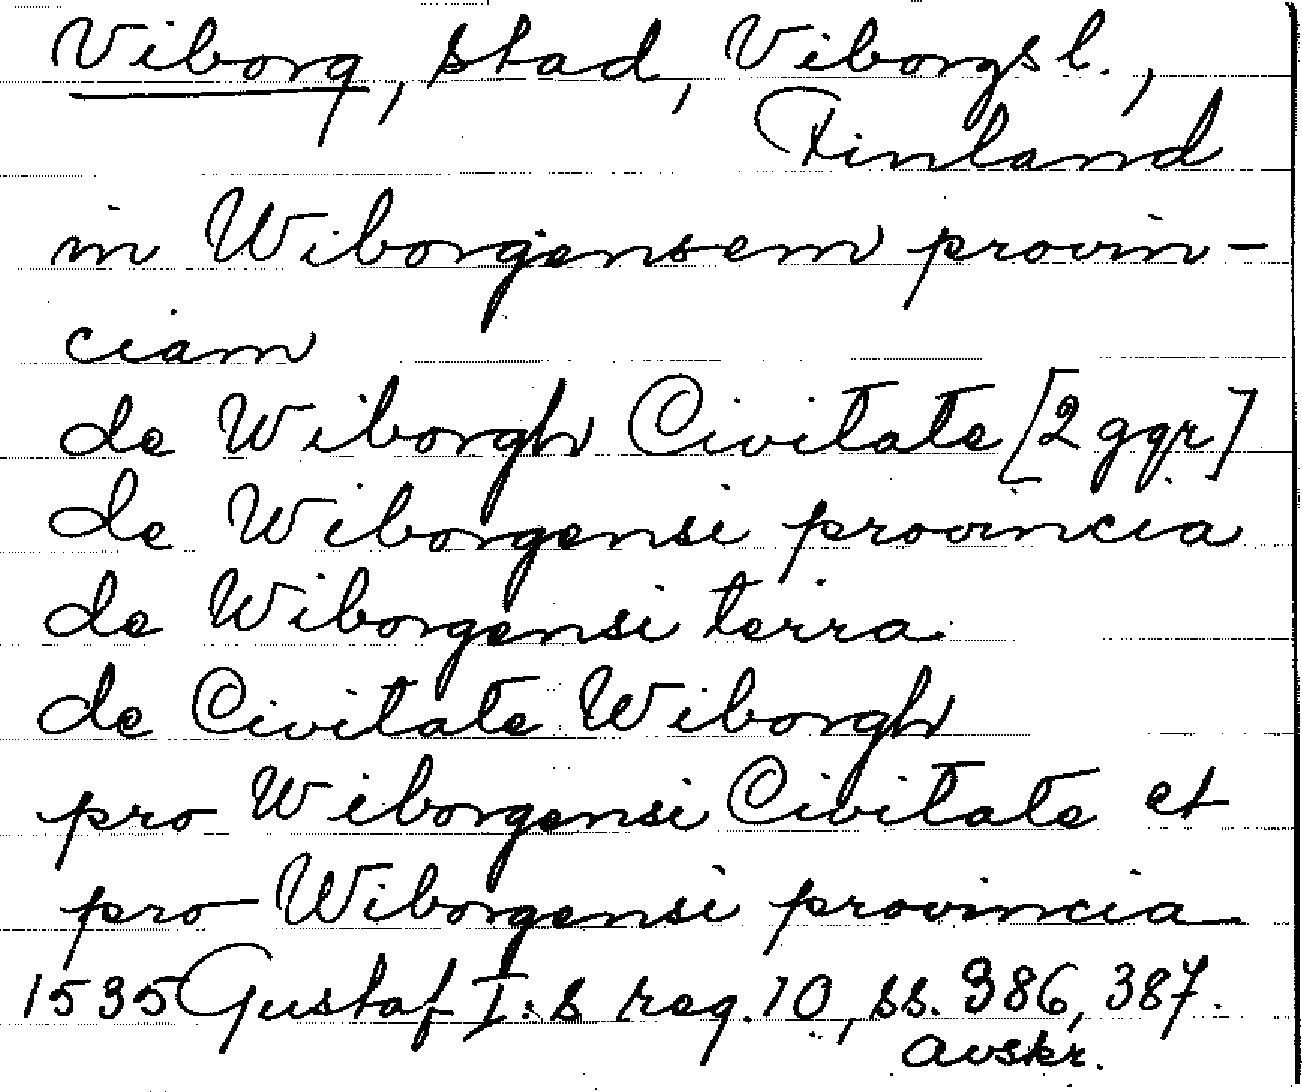 Viborg, stad, Viborgs l.,
Finland
in Wiborgensem provin-
ciam
de Wiborgh Civitate [2 ggr]
de Wiborgensi provincia
de Wiborgensi terra
de Civitate Wiborgh
pro Wiborgensi Civitate et
pro Wiborgensi provincia
1535 Gustaf I:s reg. 10, ss. 386, 387.
avskr.